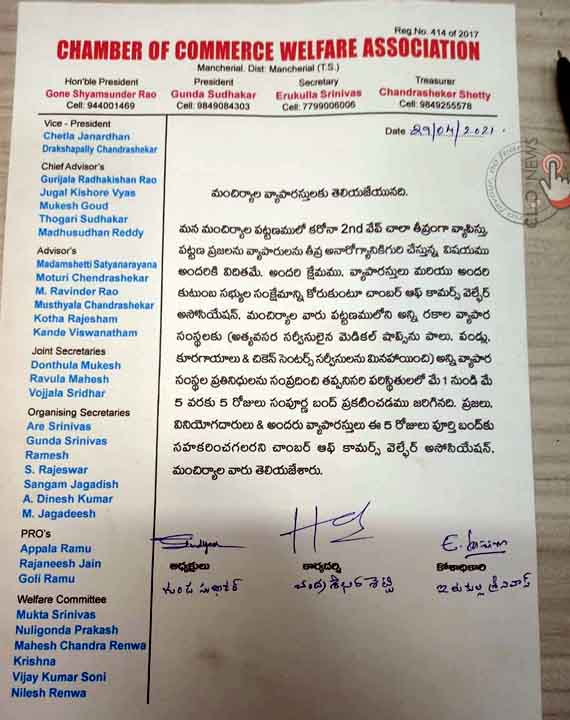 Reg.No. 414 of 2017
CHAMBER OF COMMERCE WELFARE ASSOCIATION
Mancherial. Dist: Mancherial (T.S.)
Hon'ble President
Gone Shyamsunder Rao
Cell: 944001469
President
Gunda Sudhakar
Cell: 9849084303
Secretary
Erukulla Srinivas
Cell: 7799006006
Treasurer
Chandrasheker Shetty
Cell: 9849255578
Vice - President
Chetla Janardhan
Drakshapally Chandrashekar
Chief Advisor's
Gurijala Radhakishan Rao
Jugal Kishore Vyas
Mukesh Goud
Thogari Sudhakar
Madhusudhan Reddy
Advisor's
Madamshetti Satyanarayana
Moturi Chendrashekar
M. Ravinder Rao
Musthyala Chandrashekar
Kotha Rajesham
Kande Viswanatham
Joint Secretaries
Donthula Mukesh
Ravula Mahesh
Vojjala Sridhar
Organising Secretaries
Are Srinivas
Gunda Srinivas
Ramesh
S. Rajeswar
Sangam Jagadish
A. Dinesh Kumar
M. Jagadeesh
PRO's
Appala Ramu
Rajaneesh Jain
Goli Ramu
Welfare Committee
Mukta Srinivas
Nuligonda Prakash
Mahesh Chandra Renwa
Krishna
Vijay Kumar Soni
Nilesh Renwa
Date 29/04/2021.
మంచిర్యాల వ్యాపారస్తులకు తెలియజేయునది.
మన మంచిర్యాల పట్టణములో కరోనా 2nd వేవ్ చాలా తీవ్రంగా వ్యాపిస్తు,
పట్టణ ప్రజలను వ్యాపారులను తీవ్ర అనారోగ్యానికిగురి చేస్తున్న విషయము
అందరికి విదితమే. అందరి క్షేమము, వ్యాపారస్తులు మరియు అందరి
కుటుంబ సభ్యుల సంక్షేమాన్ని కోరుకుంటూ చాంబర్ ఆఫ్ కామర్స్ వెల్ఫేర్
అసోసియేషన్. మంచిర్యాల వారు పట్టణములోని అన్ని రకాల వ్యాపార
సంస్థలకు (అత్యవసర సర్వీసులైన మెడికల్ షాప్స్‌ను పాలు, పండ్లు,
కూరగాయాలు & చికెన్ సెంటర్స్ సర్వీసులను మినహాయించి) అన్ని వ్యాపార
సంస్థల ప్రతినిధులను సంప్రదించి తప్పనిసరి పరిస్థితులలో మే 1 నుండి మే
5 వరకు 5 రోజులు సంపూర్ణ బంద్ ప్రకటించడము జరిగినది. ప్రజలు,
వినియోగదారులు & అందరు వ్యాపారస్తులు ఈ 5 రోజులు పూర్తి బంద్‌కు
సహకరించగలరని చాంబర్ ఆఫ్ కామర్స్ వెల్ఫేర్ అసోసియేషన్.
మంచిర్యాల వారు తెలియజేశారు.
అధ్యక్షులు
గుండ సుధాకర్
కార్యదర్శి
చంద్రశేఖర్ శెట్టి
కోశాధికారి
ఇరుకుల్ల శ్రీనివాస్
CLIQ NEWS